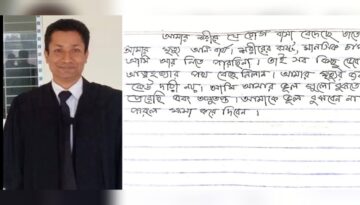 আমার শরীরে যে রোগ বাসা বেধেছে তাতে
আমার মৃত্যু অনিবার্য। শরীরের কষ্ট, মানসিক চাপ
আমি আর নিতে পারছিনা। তাই সব কিছু ছেড়ে
আত্মহত্যার পথ বেছে নিলাম। আমার মৃত্যুর জন্য
কেউ দায়ী নয়। আমি আমার ভুল গুলো বুঝতে
পেরেছি এবং অনুতপ্ত। আমাকে ভুল বুঝবেন না
পারলে ক্ষমা করে দিবেন।